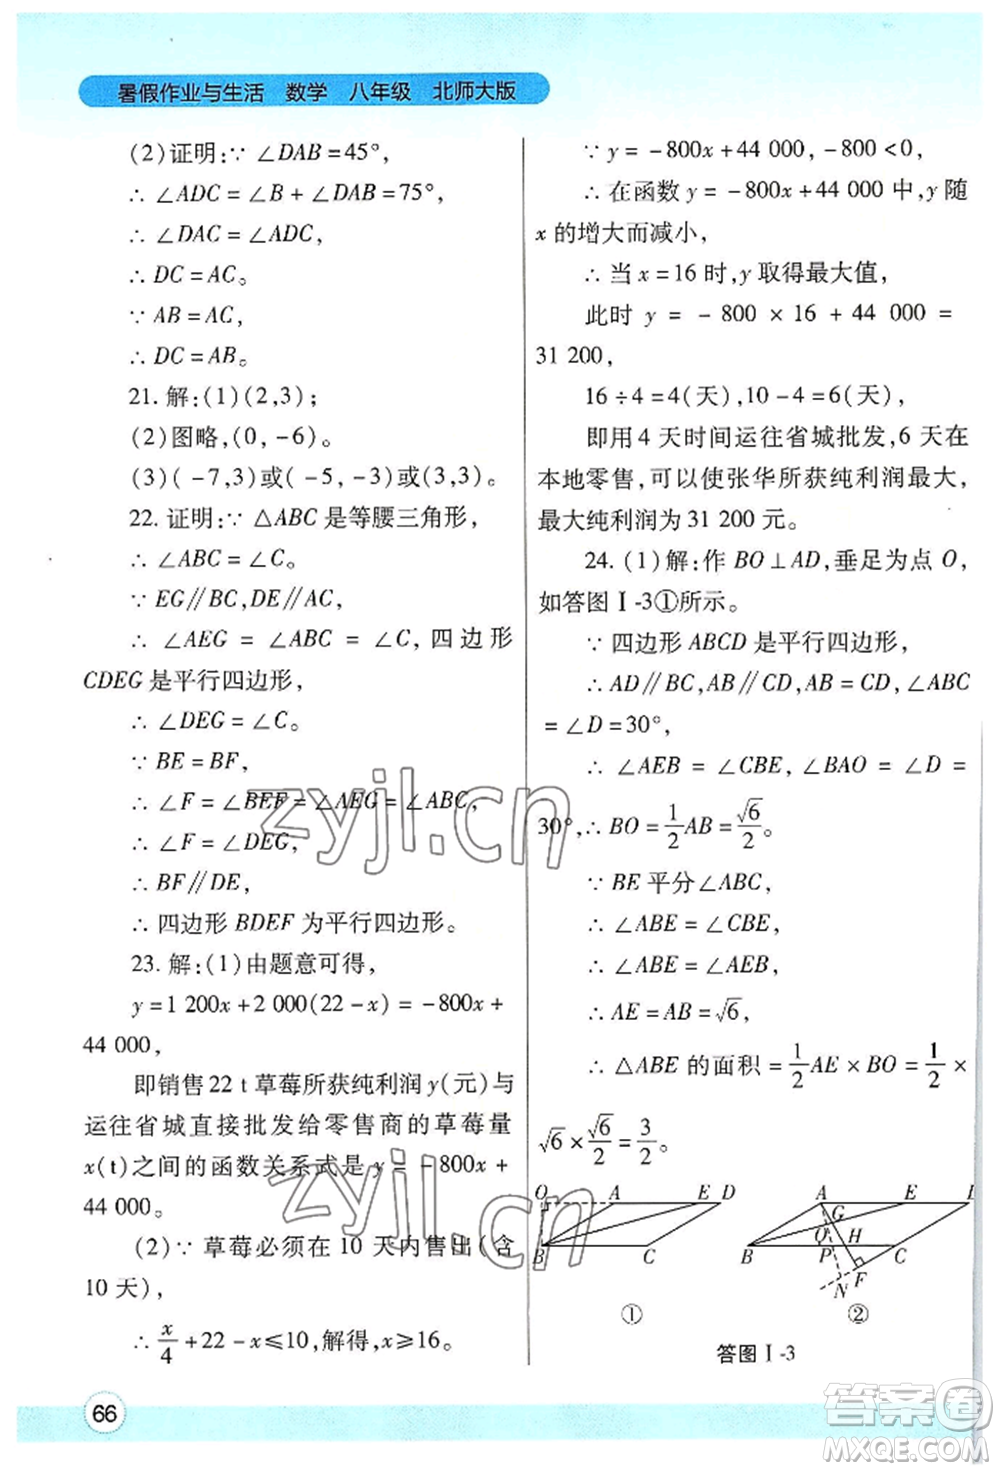 暑假作业与生活 数学 八年级 北师大版
(2)证明:∵ ∠DAB=45°,
∴ ∠ADC=∠B+∠DAB=75°,
∴ ∠DAC=∠ADC,
∴ DC=AC。
∵ AB=AC,
∴ DC=AB。
21. 解:(1)(2,3);
(2)图略,(0,-6)。
(3)(-7,3)或(-5,-3)或(3,3)。
22. 证明:∵ △ABC 是等腰三角形,
∴ ∠ABC=∠C。
∵ EG∥BC,DE∥AC,
∴ ∠AEG = ∠ABC = ∠C, 四边形
CDEG 是平行四边形,
∴ ∠DEG=∠C。
∵ BE=BF,
∴ ∠F=∠BEF=∠AEG=∠ABC,
∴ ∠F=∠DEG,
∴ BF∥DE,
∴ 四边形 BDEF 为平行四边形。
23. 解:(1)由题意可得,
y=1 200x+2 000(22-x)=-800x+
44 000,
即销售 22 t 草莓所获纯利润 y(元)与
运往省城直接批发给零售商的草莓量
x(t)之间的函数关系式是 y = -800x+
44 000。
(2)∵ 草莓必须在 10 天内售出(含
10 天),
∴ x/4+22-x≤10,解得,x≥16。
∵ y=-800x+44 000,-800<0,
∴ 在函数 y=-800x+44 000 中,y 随
x 的增大而减小,
∴ 当 x=16 时,y 取得最大值,
此时 y = -800 × 16 + 44 000 =
31 200,
16÷4=4(天),10-4=6(天),
即用 4 天时间运往省城批发,6 天在
本地零售,可以使张华所获纯利润最大,
最大纯利润为 31 200 元。
24. (1)解:作 BO⊥AD,垂足为点 O,
如答图Ⅰ-3①所示。
∵ 四边形 ABCD 是平行四边形,
∴ AD∥BC,AB∥CD,AB=CD,∠ABC
=∠D=30°,
∴ ∠AEB = ∠CBE, ∠BAO = ∠D =
30°,∴ BO=1/2AB=√6/2。
∵ BE 平分∠ABC,
∴ ∠ABE=∠CBE,
∴ ∠ABE=∠AEB,
∴ AE=AB=√6,
∴ △ABE 的面积=1/2AE×BO=1/2×
√6×√6/2=3/2。
O A E D
B C
①
A E
G
Q H
B P C
F
N
②
答图Ⅰ-3
66
zyjl.cn
zyjl.cn
答案圈
MXQE.COM